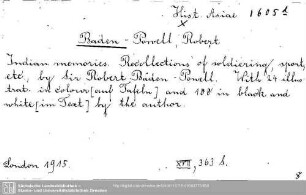 Hist. Asiae 1605d
x
Baden-Powell, Robert
Indian memories. Recollections of soldiering, sport,
etc., by Sir Robert Baden-Powell. With 24 illus-
trat. in colour [auf Tafeln] and 100 in black and
white [im Text] by the author.
London 1915. XVI, 363 S.
8°
Sächsische Landesbibliothek -
Staats- und Universitätsbibliothek Dresden